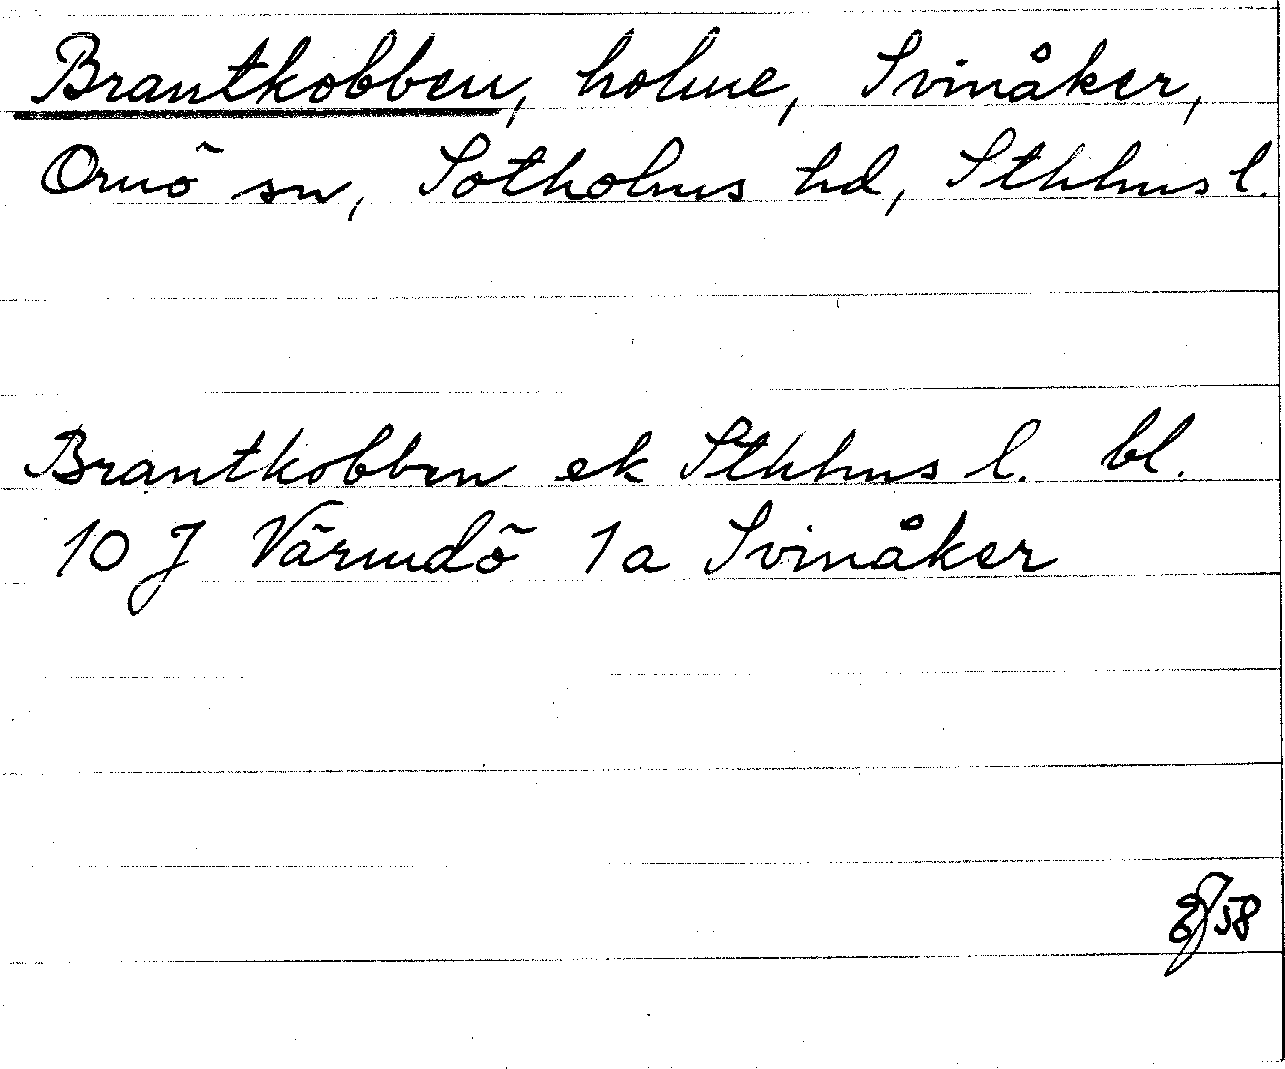 Brantkobben, holme, Svinåker,
Ornö sn, Sotholms hd, Sthlms l.
Brantkobben ek Sthlms l. bl.
10 J Värmdö 1a Svinåker
58